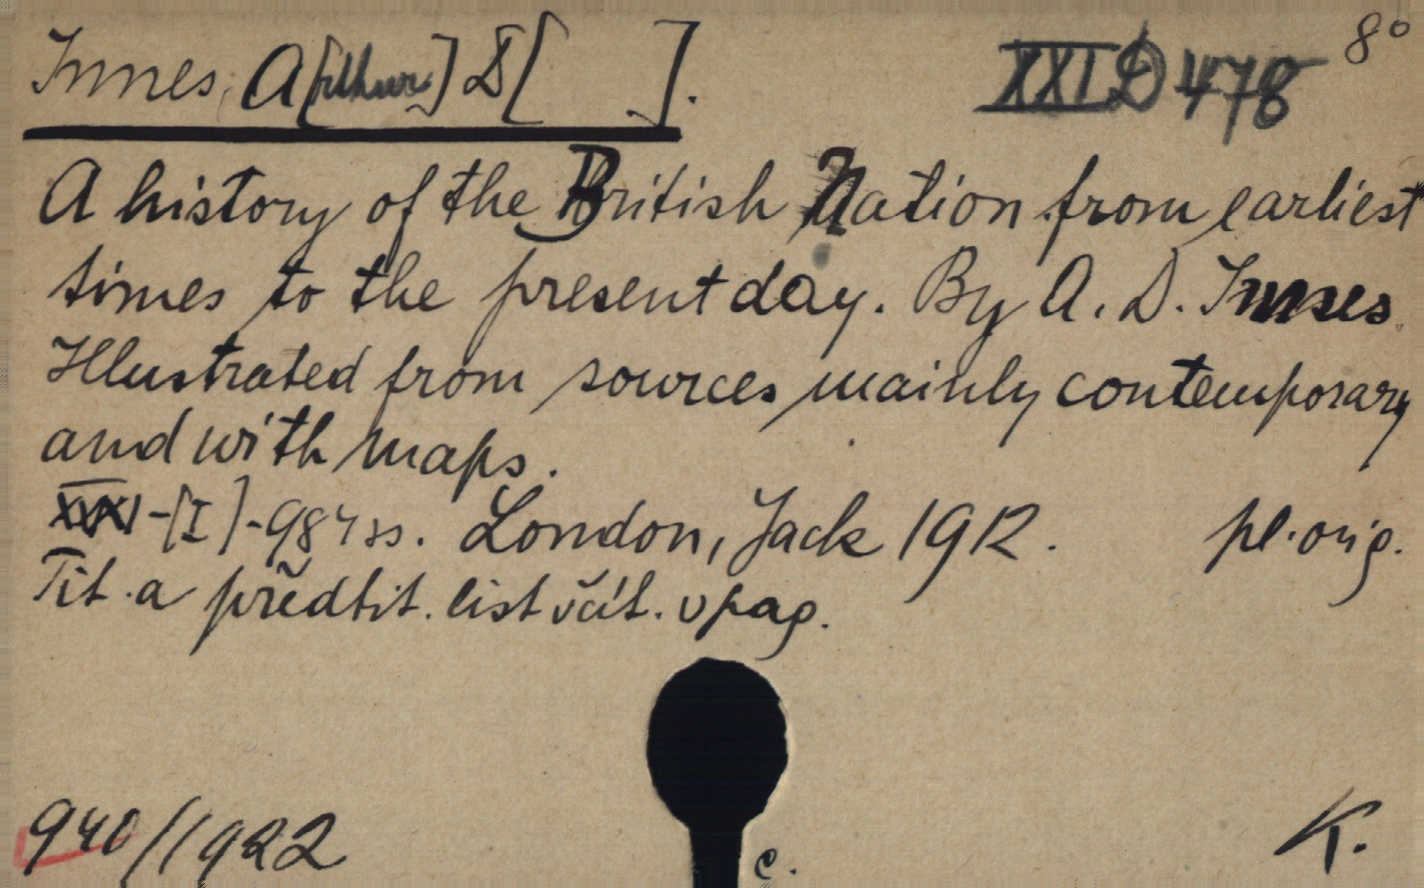 Innes, A[rthur] D[ ]. XXI D 478 8°
A history of the British Nation from earliest
times to the present day. By A. D. Innes.
Illustrated from sources mainly contemporary
and with maps.
-[I]-984 ss. London, Jack 1912. pl. orig.
Tit. a předtit. list čít. v pag.
940/1922 c. K.